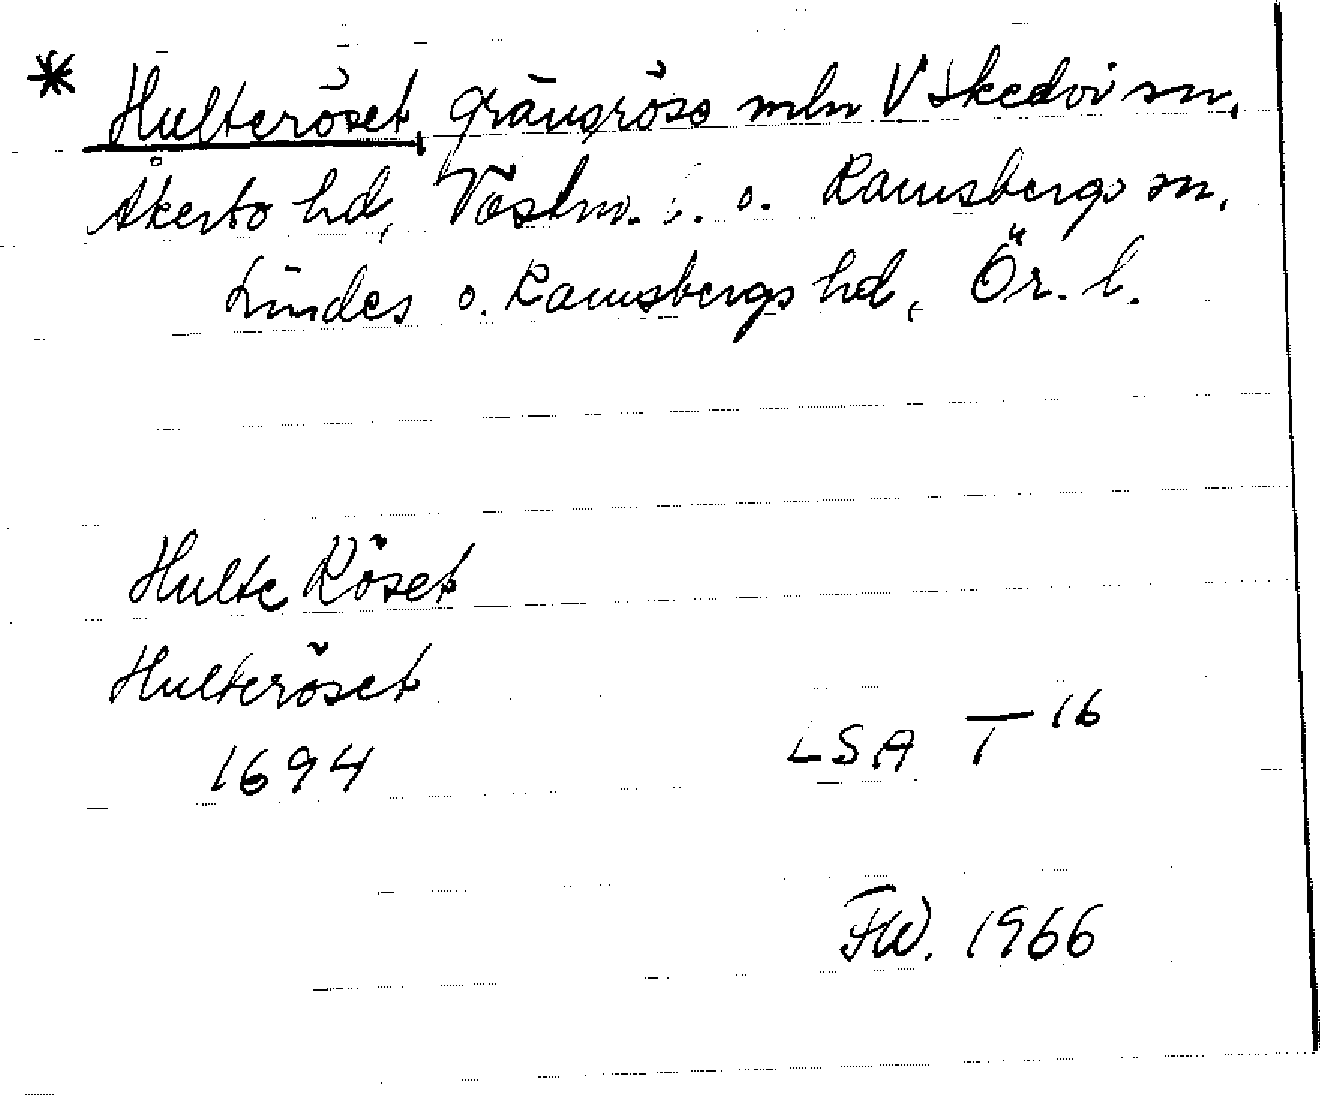 * Hulteröset, gränsröse mln V Skedvi sn,
Åkerbo hd, Västm. l. o. Ramsbergs sn,
Lindes o. Ramsbergs hd, Ör. l.
Hulte Röset
Hulteröset
1694 LSA T 16
FW. 1966